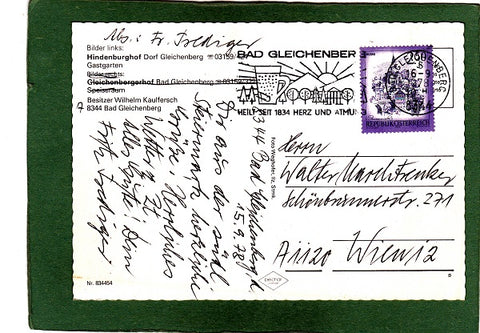 Abs.: Fr. Frediger
Bilder links:
Hindenburghof Dorf Gleichenberg ☏ 03159/
Gastgarten
Bilder rechts:
Gleichenbergerhof Bad Gleichenberg ☏ 03159/
Speiseraum
Besitzer Wilhelm Kaufersch
8344 Bad Gleichenberg
BAD GLEICHENBER
HEILT SEIT 1834 HERZ UND ATMU
GLEICHENBERG
16-
8344
REPUBLIK ÖSTERREICH
8344 Bad Gleichenberg
15.9.78
Da aus der
Steiermark herzliche
Herrliches
Wetter
Alles Gute! Dein
Fritz Frediger
Foto Weghofer, Tir. Strml.
Herrn
Walter
Schönbrunnerstr. 271
A 1120 Wien 12
Nr. 834454